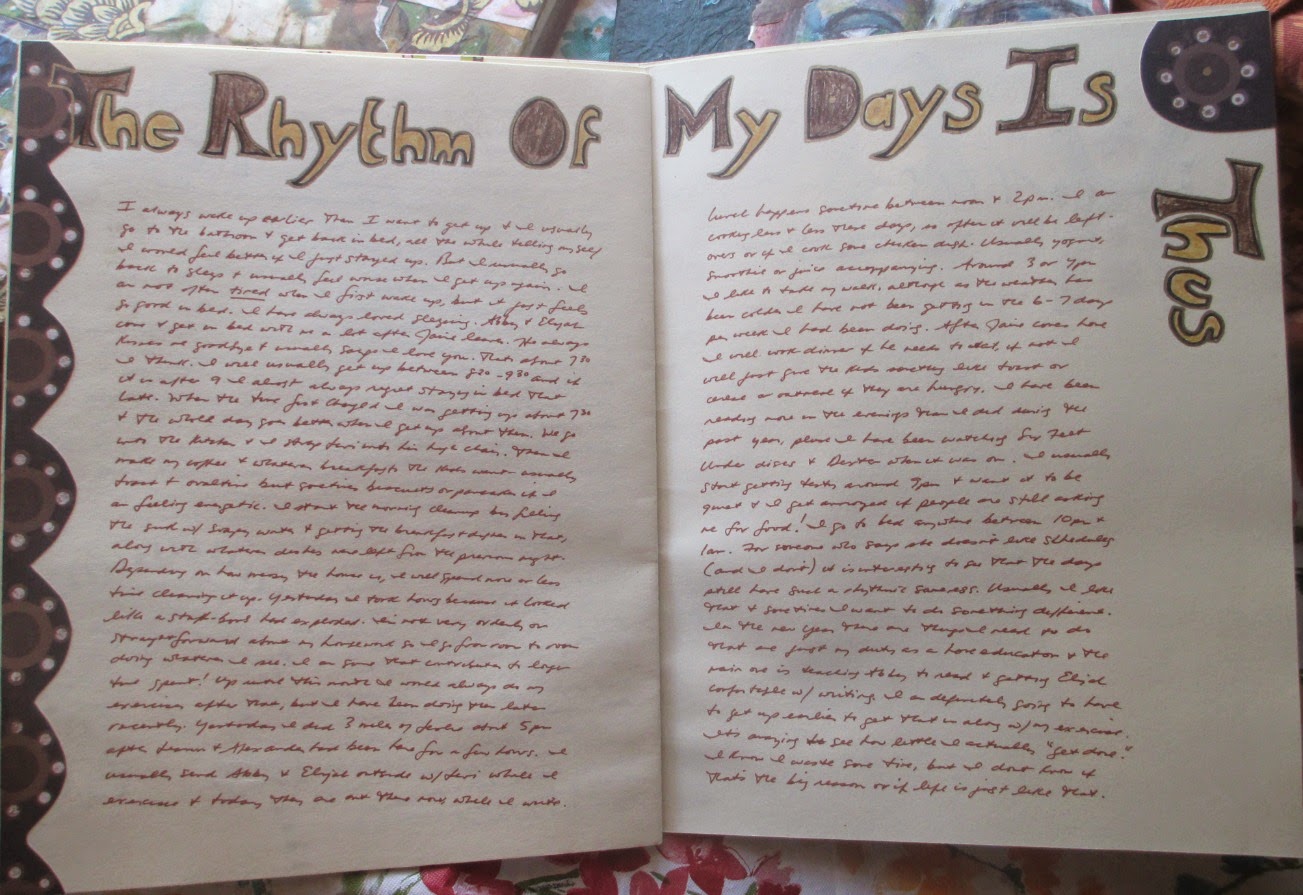 The Rhythm Of My Days Is Thus
I always wake up earlier than I want to get up & I usually
go to the bathroom & get back in bed, all the while telling myself
I would feel better if I just stayed up. But I usually go
back to sleep & usually feel worse when I get up again. I
am not often tired when I first wake up, but it just feels
so good in bed. I have always loved sleeping. Abby & Elijah
come & get in bed with me a lot after Jaime leaves. He always
kisses me goodbye & usually says I love you. That's about 730
I think. I will usually get up between 830-930 and if
it is after 9 I almost always regret staying in bed that
late. When the time first changed I was getting up about 730
& the whole day goes better when I get up about then. We go
into the kitchen & I strap into his high chair. Then I
make my coffee & whatever breakfast the kids want usually
toast & ovaltine but sometimes biscuits or pancakes if I
am feeling energetic. I start the morning cleanup by filling
the sink w/ soapy water & getting the breakfast dishes in that,
along with whatever dishes were left from the previous night.
Depending on how messy the house is, I will spend more or less
time cleaning it up. Yesterday I took hours because it looked
like a stuff-bomb had exploded. I'm not very orderly or
straightforward about my housework so I go from room to room
doing whatever I see. I am sure that contributes to longer
time spent! Up until this month I would always do my
exercises after that, but I have been doing them later
recently. Yesterday I did 3 miles of about 5 pm
after & Alexander had been here for a few hours. I
usually send Abby & Elijah outside w/ while I
exercise & today they are out there now while I write.
Lunch happens sometime between noon & 2pm. I am
cooking less & less these days, so often it will be left-
overs or if I cook some chicken dish. Usually yogurt,
smoothie or juice accompanying. Around 3 or 4pm
I like to take my walk, although as the weather has
been colder I have not been getting in the 6-7 days
per week I had been doing. After Jaime comes home
I will work dinner if he needs to eat, if not I
will just give the kids something like toast or
cereal or oatmeal if they are hungry. I have been
reading more in the evenings than I did during the
past year, plus I have been watching Six Feet
Under discs & Dexter when it was on. I usually
start getting testy around 9pm & want it to be
quiet & I get annoyed if people are still asking
me for food! I go to bed anytime between 10pm &
1am. For someone who says she doesn't like schedules
(and I don't) it is interesting to see that the days
still have such a rhythmic sameness. Usually I like
that & sometimes I want to do something different.
In the new year there are things I need to do
that are just my duty as a home education & the
main one is teaching Abby to read & getting Elijah
comfortable w/ writing. I am definitely going to have
to get up earlier to get that in along w/ my exercise.
It's amazing to see how little I actually "get done".
I know I waste some time, but I don't know if
that's the big reason or if life is just like that.